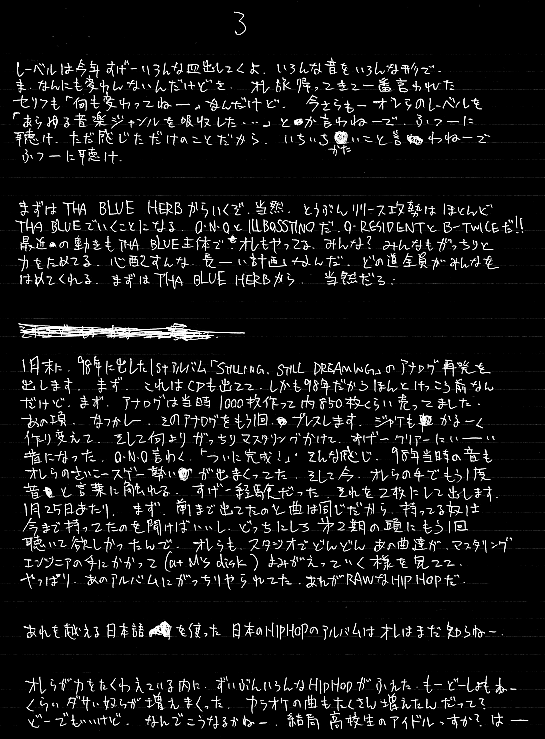 3
レーベルは今年すげーいろんな皿出してくよ. いろんな音をいろんな形で.
ま. なんにも変わんないんだけどを. オレ旅帰ってきて一番言われた
セリフも「何も変わってねー」なんだけど. 今さらもーオレらのレーベルを
「あらゆる音楽ジャンルを吸収した…」とか言わねーで. ふつーに
聴け. ただ感じただけのことだから. いちいちかたいこと言わねーで
ふつーに聴け.
まずは THA BLUE HERB からいくで. 当然. とうぶんリリース攻勢はほとんど
THA BLUEでいくことになる. O.N.OとILL BOSSTINOだ. O-RESIDENTとB-TWICEだ!!
最近の動きもTHA BLUE主体でオレもやってる. みんな? みんなもがっちりと
力をためてる. 心配すんな. 長ーい計画なんだ. どの道全員がみんなを
はめてくれる. まずはTHA BLUE HERBから. 当然だろ.
1月末に. 98年に出した1stアルバム「STILLING, STILL DREAMING」のアナログ再発を
出します. まず. これはCDも出てて. しかも98年だからほんとけっこう前なん
だけど. まず. アナログは当時1000枚作って内850枚くらい売ってました.
あの頃. なつかし. そのアナログをもう1回プレスします. ジャケもかるーく
作り変えて. そして何よりがっちりマスタリングかけて. すげークリアーにいーい
音になった. O.N.O曰わく「ついに完成!」そんな感じ. 98年当時の音も
オレらのきにースゲー勢いが出まくってた. そして今. オレらの手でもう1度
音と言葉に触れる. すげー経験だった. それを2枚にして出します.
1月25日あたり. まず. 前まで出てたのと曲は同じだから. 持ってる奴は
今まで持ってたのを聞けばいいし. どっちにしろ 第2期の頭にもう1回
聴いて欲しかったんで. オレらも. スタジオでどんどんあの曲達が. マスタリング
エンジニアの手にかかって (at M's disk) よみがえっていく様を見てて.
やっぱり. あのアルバムにがっちりやられてた. あれがRAWなHIP HOPだ.
あれを越える日本語を使った日本のHIPHOPのアルバムはオレはまだ知らねー.
オレらが力をたくわえている内に. ずいぶんいろんなHIPHOPがふえた. もーどーしよもねー
くらいダサい奴らが増えまくった. カラオケの曲もたくさん増えたんだって?
どーでもいいけど. なんでこうなるかねー. 結局 高校生のアイドルっすか? はー